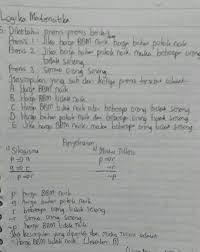 Logika Matematika
5. Diketahui premis-premis berikut
Premis 1 : Jika harga BBM naik, harga bahan pokok naik
Premis 2 : Jika harga bahan pokok naik maka beberapa orang
tidak senang
Premis 3 : Semua orang senang
Kesimpulan yang sah dari ketiga premis tersebut adalah
A. Harga BBM naik
B. Harga BBM tidak naik
C. Harga BBM tidak naik atau beberapa orang tidak senang
D. Harga bahan pokok naik dan beberapa orang tidak senang
E. Jika harga BBM naik maka beberapa orang tidak senang
Penyelesaian
Silogisme Modus Tollens
p ⇒ q p ⇒ r
q ⇒ r ~r
p ⇒ r ~p
p harga BBM naik
q harga bahan pokok naik
r beberapa orang tidak senang
~r semua orang senang
~p harga BBM tidak naik
Jadi kesimpulan yang diperoleh dari Modus Tollens adalah
"Harga BBM tidak naik" (Jawaban B)